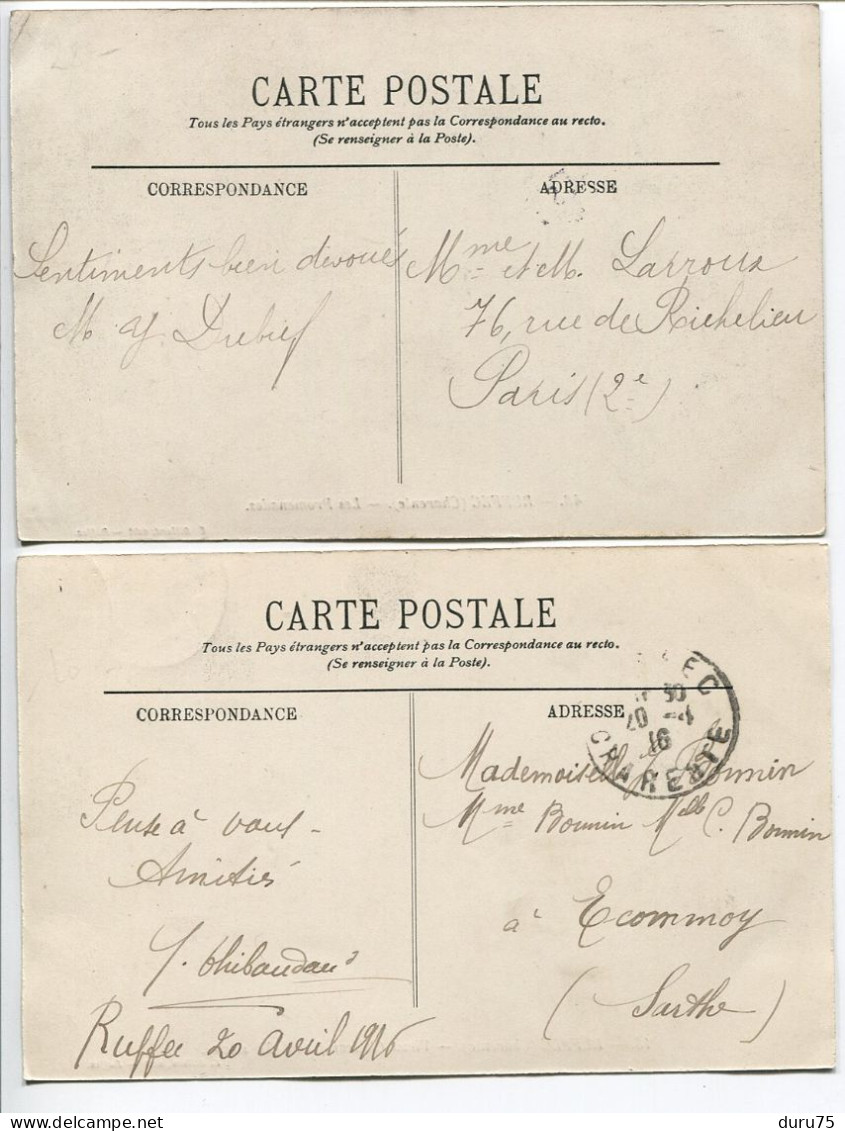 CARTE POSTALE
Tous les Pays étrangers n'acceptent pas la Correspondance au recto.
(Se renseigner à la Poste).
CORRESPONDANCE
ADRESSE
Sentiments bien dévoués
M
Mme et M. Larroux
76, rue de Richelieu
Paris (2e)
Les Promenades.
CARTE POSTALE
Tous les Pays étrangers n'acceptent pas la Correspondance au recto.
(Se renseigner à la Poste).
CORRESPONDANCE
ADRESSE
CHARENTE
Pense à vous -
Amitiés
Ruffec 20 Avril 1916
Mademoiselle Bonnin
Mme Bonnin Melle C. Bonnin
à Ecommoy
(Sarthe)
duru75